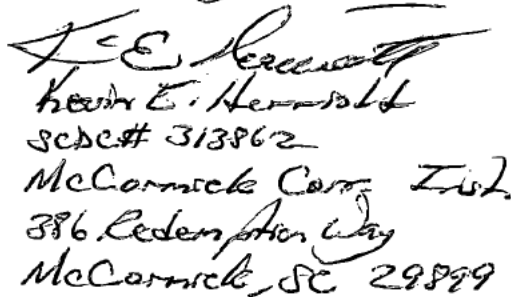 K E Herriott
Kevin E. Herriott
SCDC# 313862
McCormick Corr. Inst.
386 Redemption Way
McCormick, SC 29899